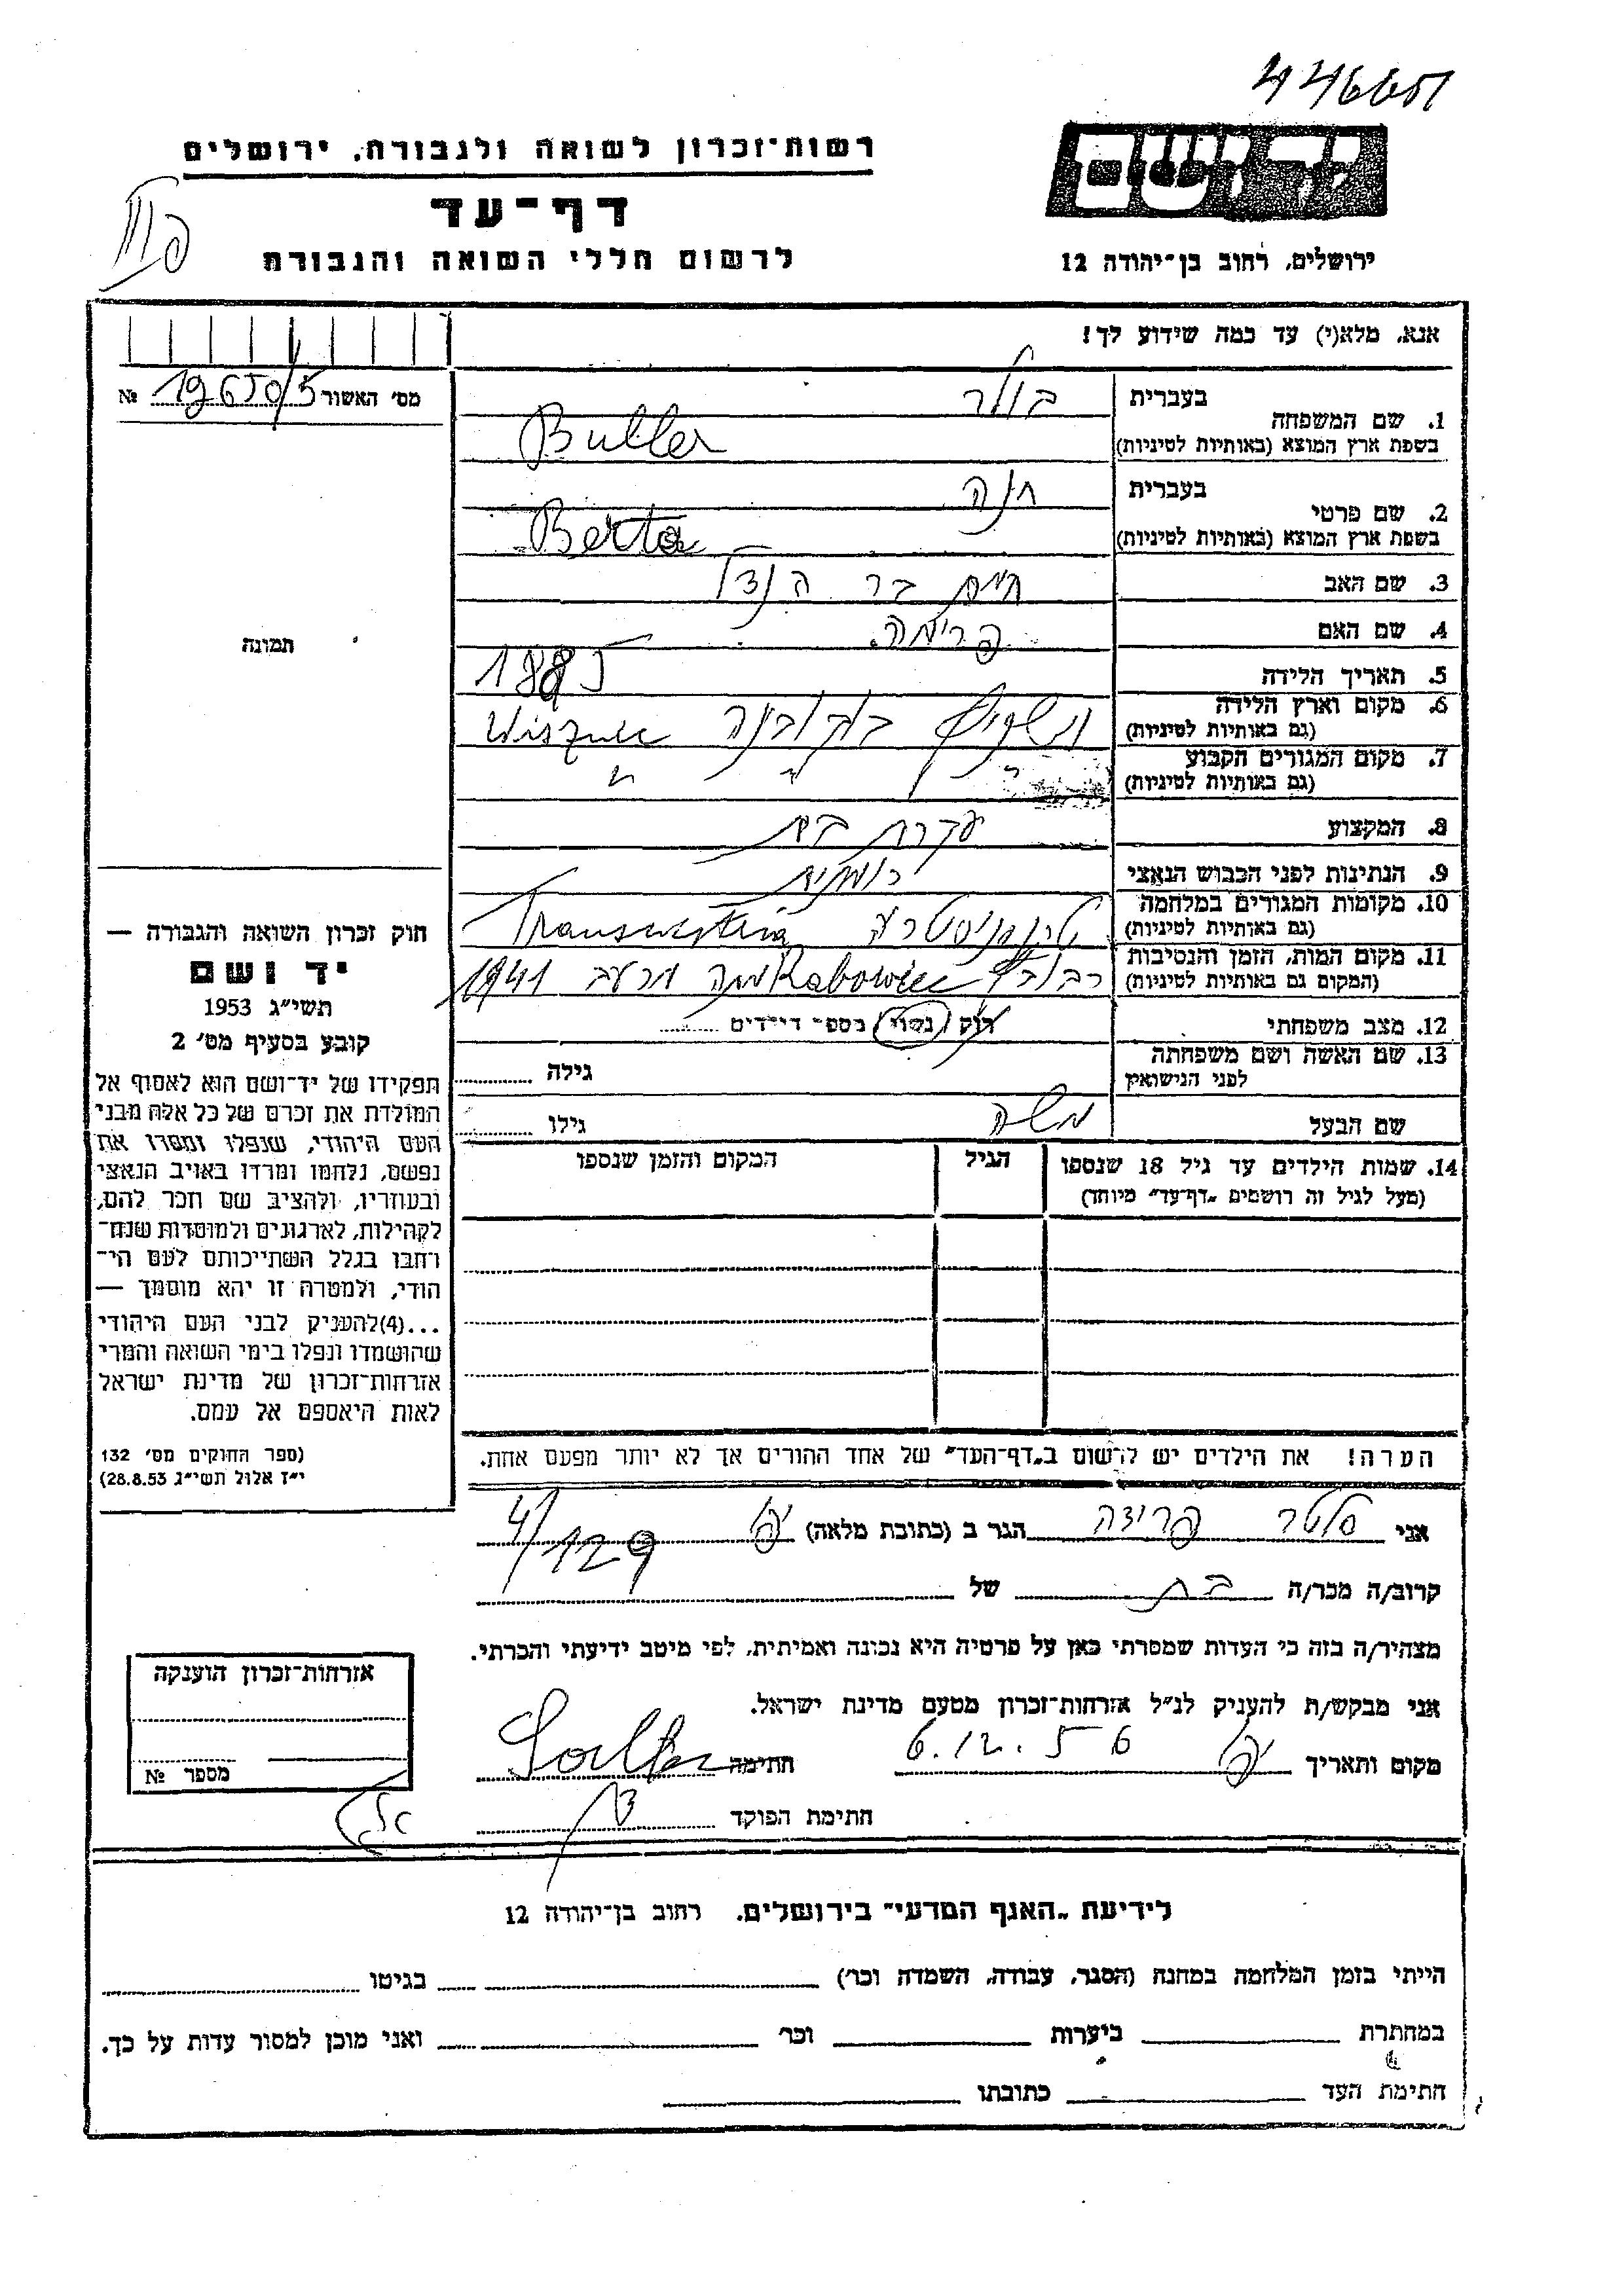 446651
רשות־זכרון לשואה ולגבורה, ירושלים
יד ושם
דף־עד
לרשום חללי השואה והגבורה
ירושלים, רחוב בן־יהודה 12
אנא, מלא(י) עד כמה שידוע לך!
מס׳ האשור 19650/5 №
בעברית
1. שם המשפחה
בשפת ארץ המוצא (באותיות לטיניות)
בולר
Buller
בעברית חנה
2. שם פרטי
בשפת ארץ המוצא (באותיות לטיניות) Berta
3. שם האב חיים בר
4. שם האם פרימה
תמונה
5. תאריך הלידה 1885
6. מקום וארץ הלידה
(גם באותיות לטיניות) בוקובינה
7. מקום המגורים הקבוע
(גם באותיות לטיניות)
8. המקצוע עקרת בית
9. הנתינות לפני הכבוש הנאצי רומנית
10. מקומות המגורים במלחמה
(גם באותיות לטיניות) טרנסניסטריה
11. מקום המות, הזמן והנסיבות
(המקום גם באותיות לטיניות) מתה מרעב 1941
12. מצב משפחתי רוק / נשוי / מספר ילדים
13. שם האשה ושם משפחתה
לפני הנישואין גילה
שם הבעל משה גילו
14. שמות הילדים עד גיל 18 שנספו
(מעל לגיל זה רושמים „דף־עד״ מיוחד)
הגיל
המקום והזמן שנספו
הערה! את הילדים יש לרשום ב„דף־העד״ של אחד ההורים אך לא יותר מפעם אחת.
חוק זכרון השואה והגבורה —
יד ושם
תשי״ג 1953
קובע בסעיף מס׳ 2
תפקידו של יד־ושם הוא לאסוף אל
המולדת את זכרם של כל אלה מבני
העם היהודי, שנפלו ומסרו את
נפשם, נלחמו ומרדו באויב הנאצי
ובעוזריו, ולהציב שם וזכר להם,
לקהילות, לארגונים ולמוסדות שנח־
רחבו בגלל השתייכותם לעם הי־
הודי, ולמטרה זו יהא מוסמך —
...(4)להעניק לבני העם היהודי
שהושמדו ונפלו בימי השואה והמרי
אזרחות־זכרון של מדינת ישראל
לאות היאספם אל עמם.
(ספר החוקים מס׳ 132
י״ז אלול תשי״ג 28.8.53)
אני סלטר פרידה הגר ב (כתובת מלאה) יפו
קרוב/ה מכר/ה בת של
מצהיר/ה בזה כי העדות שמסרתי כאן על פרטיה היא נכונה ואמיתית, לפי מיטב ידיעתי והכרתי.
אני מבקש/ת להעניק לנ״ל אזרחות־זכרון מטעם מדינת ישראל.
מקום ותאריך יפו 6.12.56 חתימה
חתימת הפוקד
אזרחות־זכרון הוענקה
מספר №
לידיעת „האגף המדעי״ בירושלים, רחוב בן־יהודה 12
הייתי בזמן המלחמה במחנה (הסגר, עבודה, השמדה וכר׳) בגיטו
במחתרת ביערות וכר׳ ואני מוכן למסור עדות על כך.
חתימת העד כתובתו